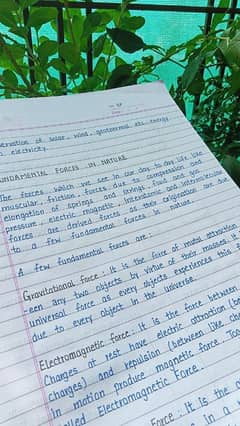 ervation of solar, wind, geothermal etc. energy
electricity.
UNDAMENTAL FORCES IN NATURE
The forces which we see in our day to day life like
muscular, friction, forces due to compression and
elongation of springs and strings, fluid and gas
pressure, electric, magnetic, interatomic and intermolecular
forces are derived forces as their origination are due
to a few fundamental forces in nature.
A few fundamental forces are:
Gravitational force: It is the force of mutual attraction
-een any two objects by virtue of their masses. It
universal force as every objects experiences this
due to every object in the universe.
Electromagnetic force: It is the force between
Charges at rest have electric attraction (be
charges) and repulsion (between like char
in motion produce magnetic force. Toge
lled Electromagnetic Force.
Force: It is the